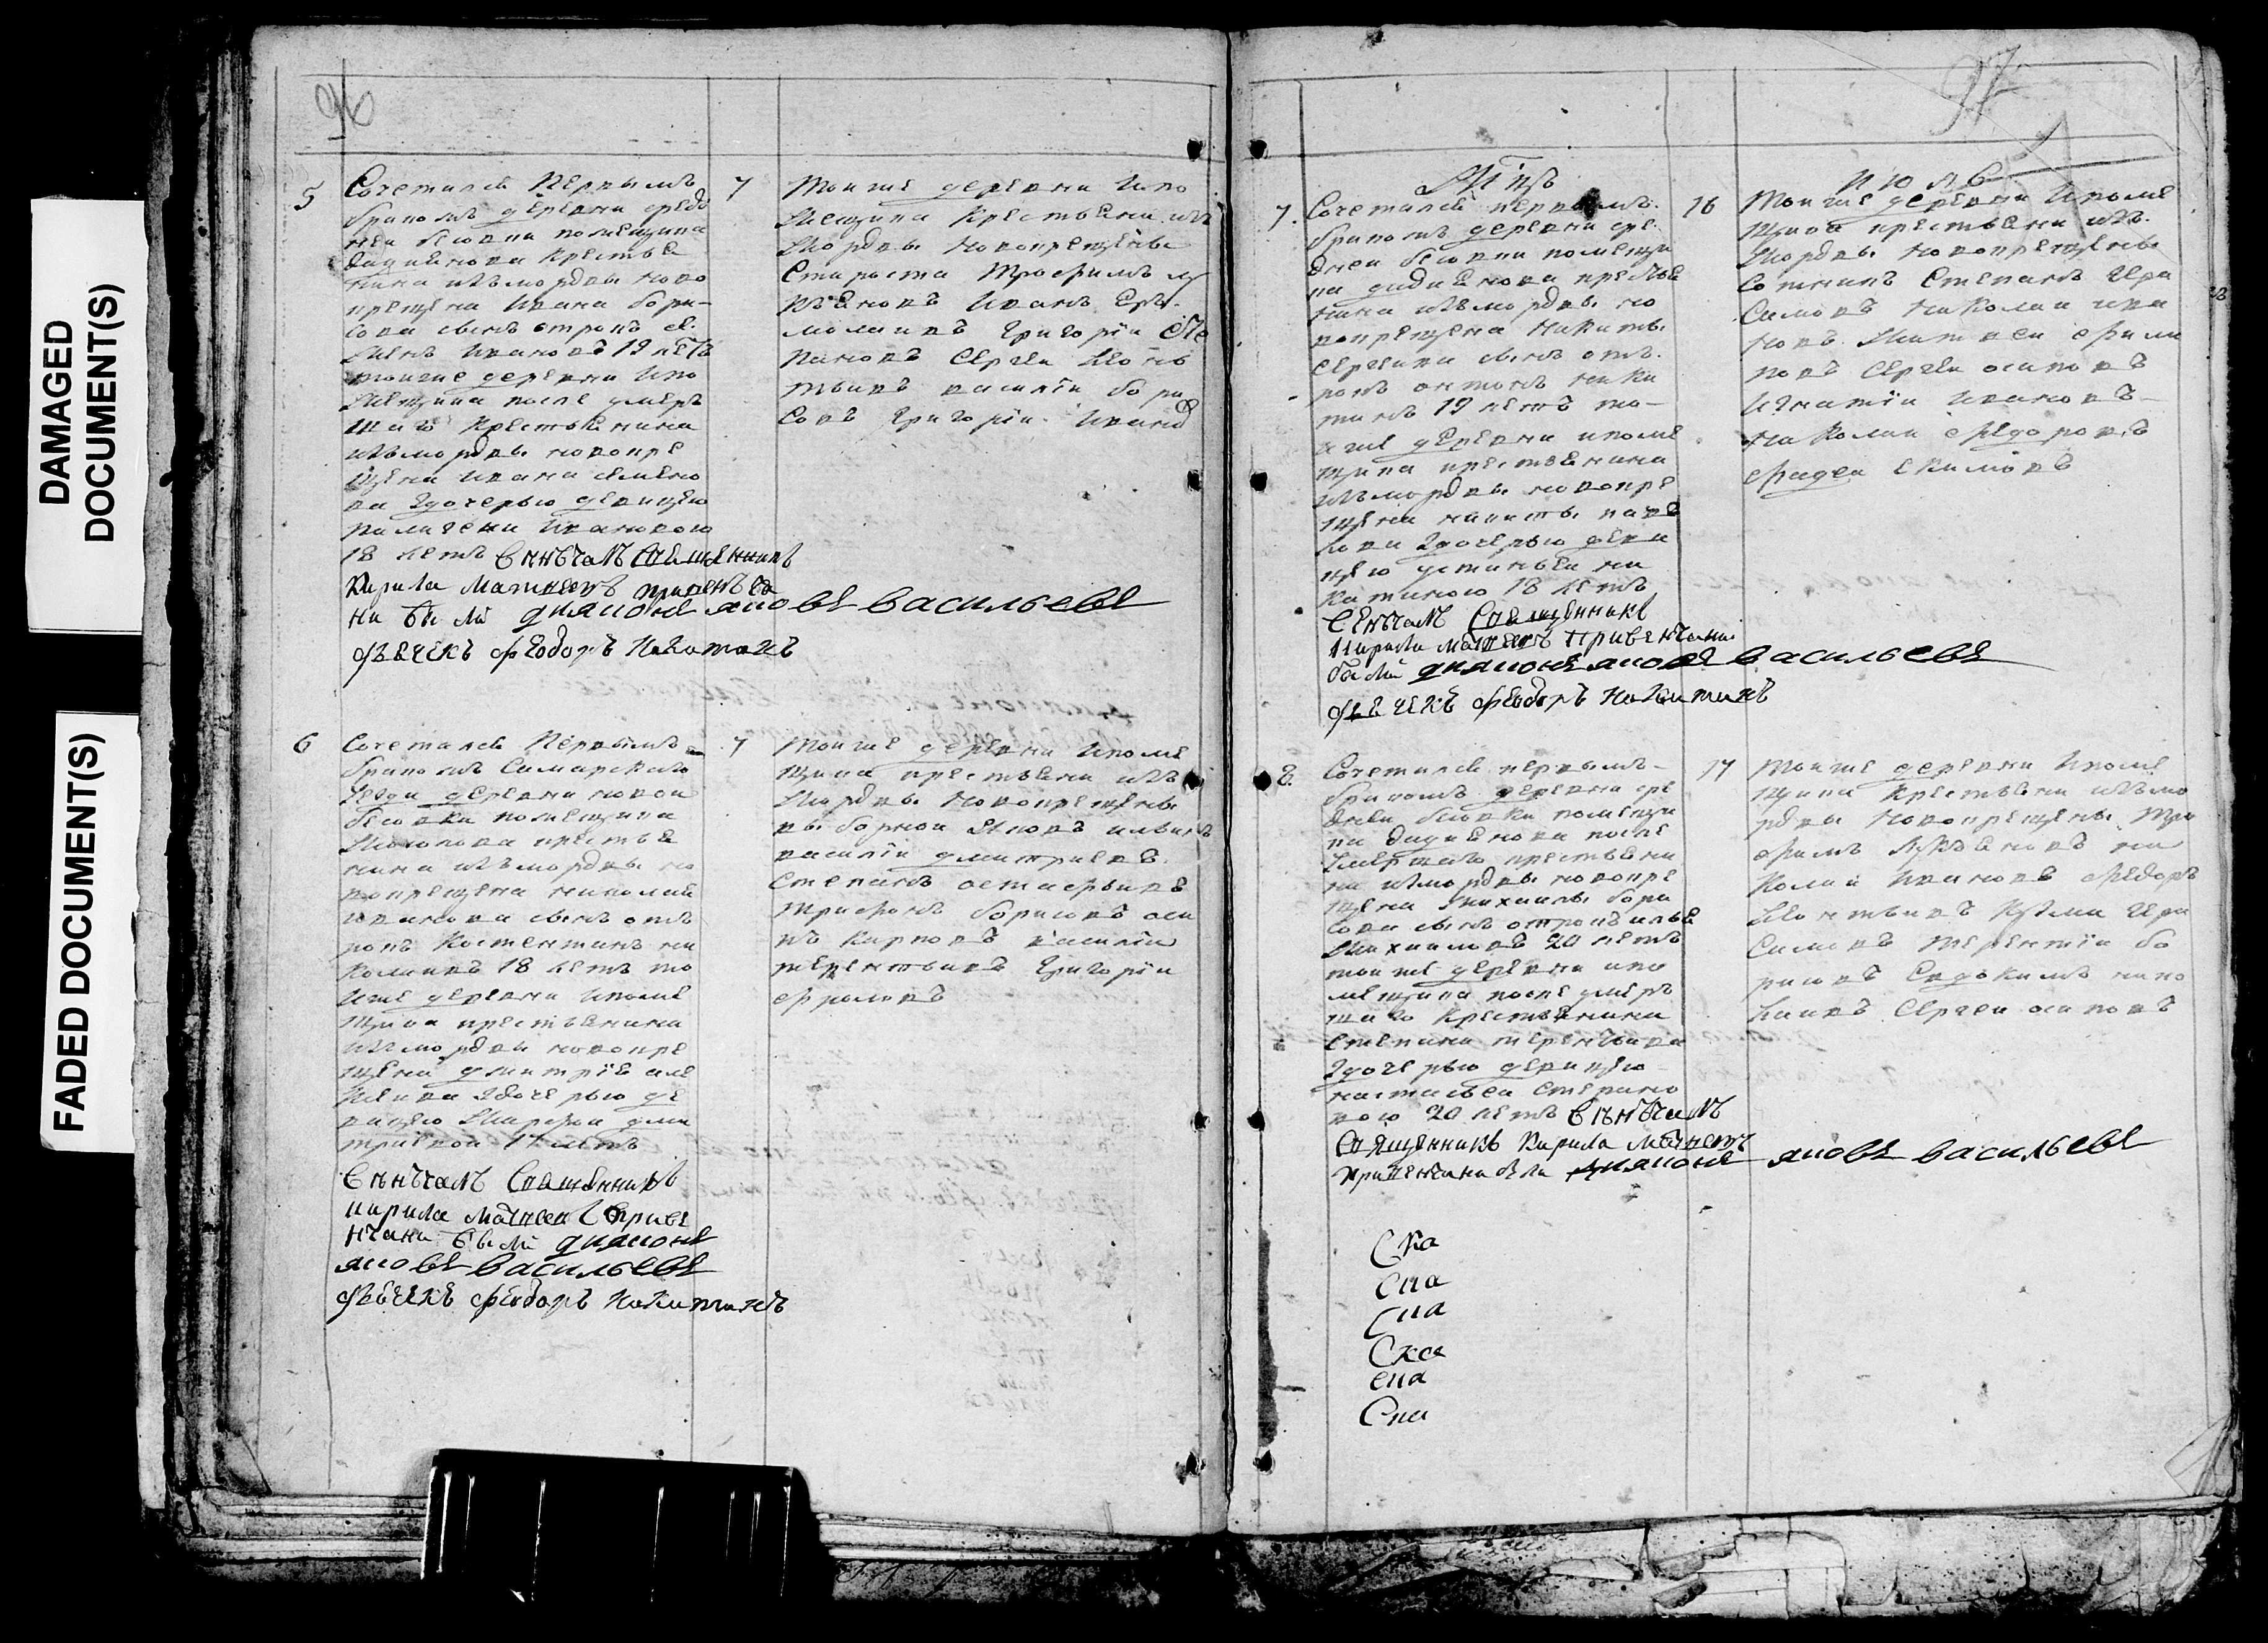 DAMAGED
DOCUMENT(S)
FADED DOCUMENT(S)
96
5
Сочетался первымъ
бракомъ деревни средъ
ней бесовки помещика
крестья
нина изъ мордвы ново
крещена Ивана бори-
сова сынъ отрокъ се.
менъ Ивановъ 19 летъ
тоиже деревни ипо
мещика после умерь
шаго крестьянина
изъ мордвы новокре
щена Ивана семено
ва здочерью девицею
Ивановою
18 летъ венчалъ священникъ
Кирила Матвеевъ привенча
ни были диаконъ яковъ васильевъ
феодоръ Никитинъ
7
Тоиже деревни ипо
мещика крестьяни изъ
мордвы новокрещены
Староста Трофимъ лу
кьяновъ Иванъ Ер.
молаивъ Григорiи Сте
пановъ Сергеи Леонь
тьивъ василiи бори
совъ Григорiи Ивано
6
Сочетался первымъ
бракомъ Самарскаго
уезда деревни новои
бесовки помещика
крестья
нина изъ мордвы но
вокрещена николая
иванова сынъ от
рокъ Костентинъ ни
колаивъ 18 летъ то
иже деревни ипоме
щика крестьянина
изъ мордвы новокре
щена дмитрiя але
здочерью де
вицею Марфои дми
триевои 17 летъ
венчалъ священникъ
кирила Матвеевъ приве
нчани были диаконъ
яковъ васильевъ
феодоръ Никитинъ
7
Тоиже деревни ипоме
щика крестьяни изъ
мордвы новокрещены
выборнои
василiи дмитриевъ
Степанъ остафьивъ
Трифонъ борисовъ оси
пъ карповъ василiи
терентьивъ Григорiи
фроловъ
97
7.
Сочетался первымъ.
бракомъ деревни сре.
днеи бесовки помещи
ка крестья
нина изъ мордвы но
вокрещена Никиты
Сергеива сынъ от.
рокъ антонъ ники
тинъ 19 летъ то-
иже деревни ипоме
щика крестьянина
изъ мордвы новокре
щена никиты
здочерью деви
цею устиньеи ни
китиною 18 летъ
венчалъ священникъ
Кирила Матвеевъ привенчани
были диаконъ яковъ васильевъ
феодоръ Никитинъ
16
Июль
Тоиже деревни ипоме
щика крестьяни изъ.
мордвы новокрещены
Сотникъ Степанъ Гера
симовъ Николаи ива
новъ Матвеи фили
повъ Сергеи осиповъ
Игнатiи Ивановъ-
Николаи Федоровъ
фадеи екимовъ
8.
Сочетался первымъ-
бракомъ деревни сре
днеи бесовки помещи
ка после
умершаго крестьяни
на изъ мордвы новокре
щена михаилы бори
сова сынъ отрокъ илья
Михаиловъ 20 летъ
тоиже деревни ипо
мещика после умерь
шаго крестьянина
Степана терентьива
здочерью девицею
настасьеи Степано
вою 20 летъ венчалъ
священникъ Кирила Матвеевъ
привенчани были диаконъ яковъ васильевъ
17
Тоиже деревни ипоме
щика крестьяни изъ мо
рдвы новокрещены Тро
фимъ Лукьяновъ ни
колаи Ивановъ Федоръ
Леонтьивъ Кузма Гера
симовъ Терентiи бо
рисовъ Евдокимъ нико
лаивъ Сергеи осиповъ
Ска
Ска
Ска
Ска
Ска
Ска